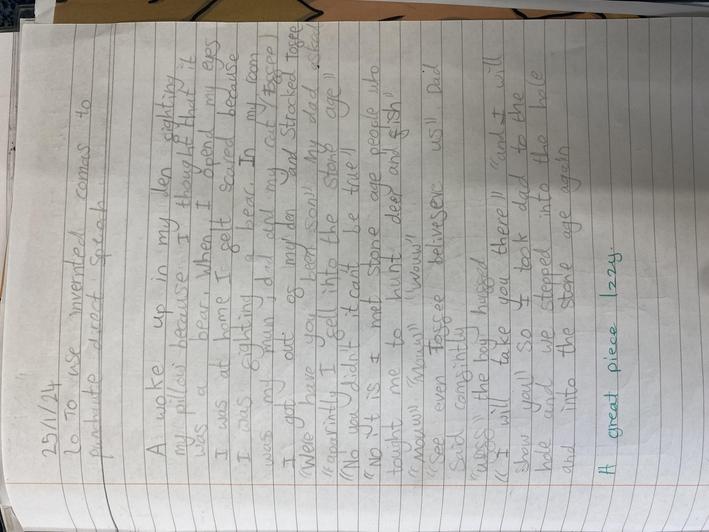 25/1/24
Lo To use invernted comas to
puntuate direct speach.
A woke up in my den fighting
my pillow because I thought that it
was a bear. When I opend my eyes
I was at home I felt scared because
I was fighting a bear. In my room
was my mum, dad and my cat (Toffee)
I got out of my den and Stroked Toffee
"Were have you been son" My dad asked
I fell into the stone age"
"No you didn't it can't be true"
"No it is I met stone age people who
tought me to hunt deer and fish"
"Mouw" "Mouw" "Wouw"
"See even Toffee us" Dad
Said
the boy huffed
"I will take you there" "and I will
show you" so I took dad to the
hole and we stepped into the hole
and into the stone age again
A great piece Izzy.